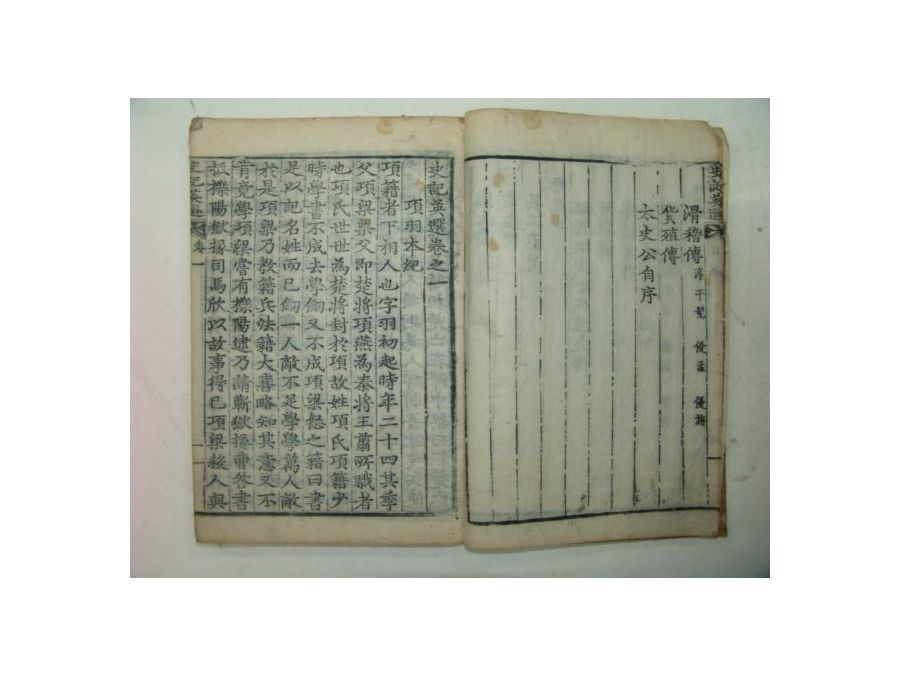 史記英選
滑稽傳 淳于髡 優孟 優旃
貨殖傳
太史公自序
史記英選卷之一
項羽本紀
項籍者下相人也字羽初起時年二十四其季
父項梁梁父即楚將項燕為秦將王翦所戮者
也項氏世世為楚將封於項故姓項氏項籍少
時學書不成去學劎又不成項梁怒之籍曰書
足以記名姓而已劎一人敵不足學學萬人敵
於是項梁乃教籍兵法籍大喜略知其意又不
肯竟學項梁嘗有櫟陽逮乃請蘄獄掾曹咎書
抵櫟陽獄掾司馬欣以故事得已項梁殺人與
史記英選 卷一